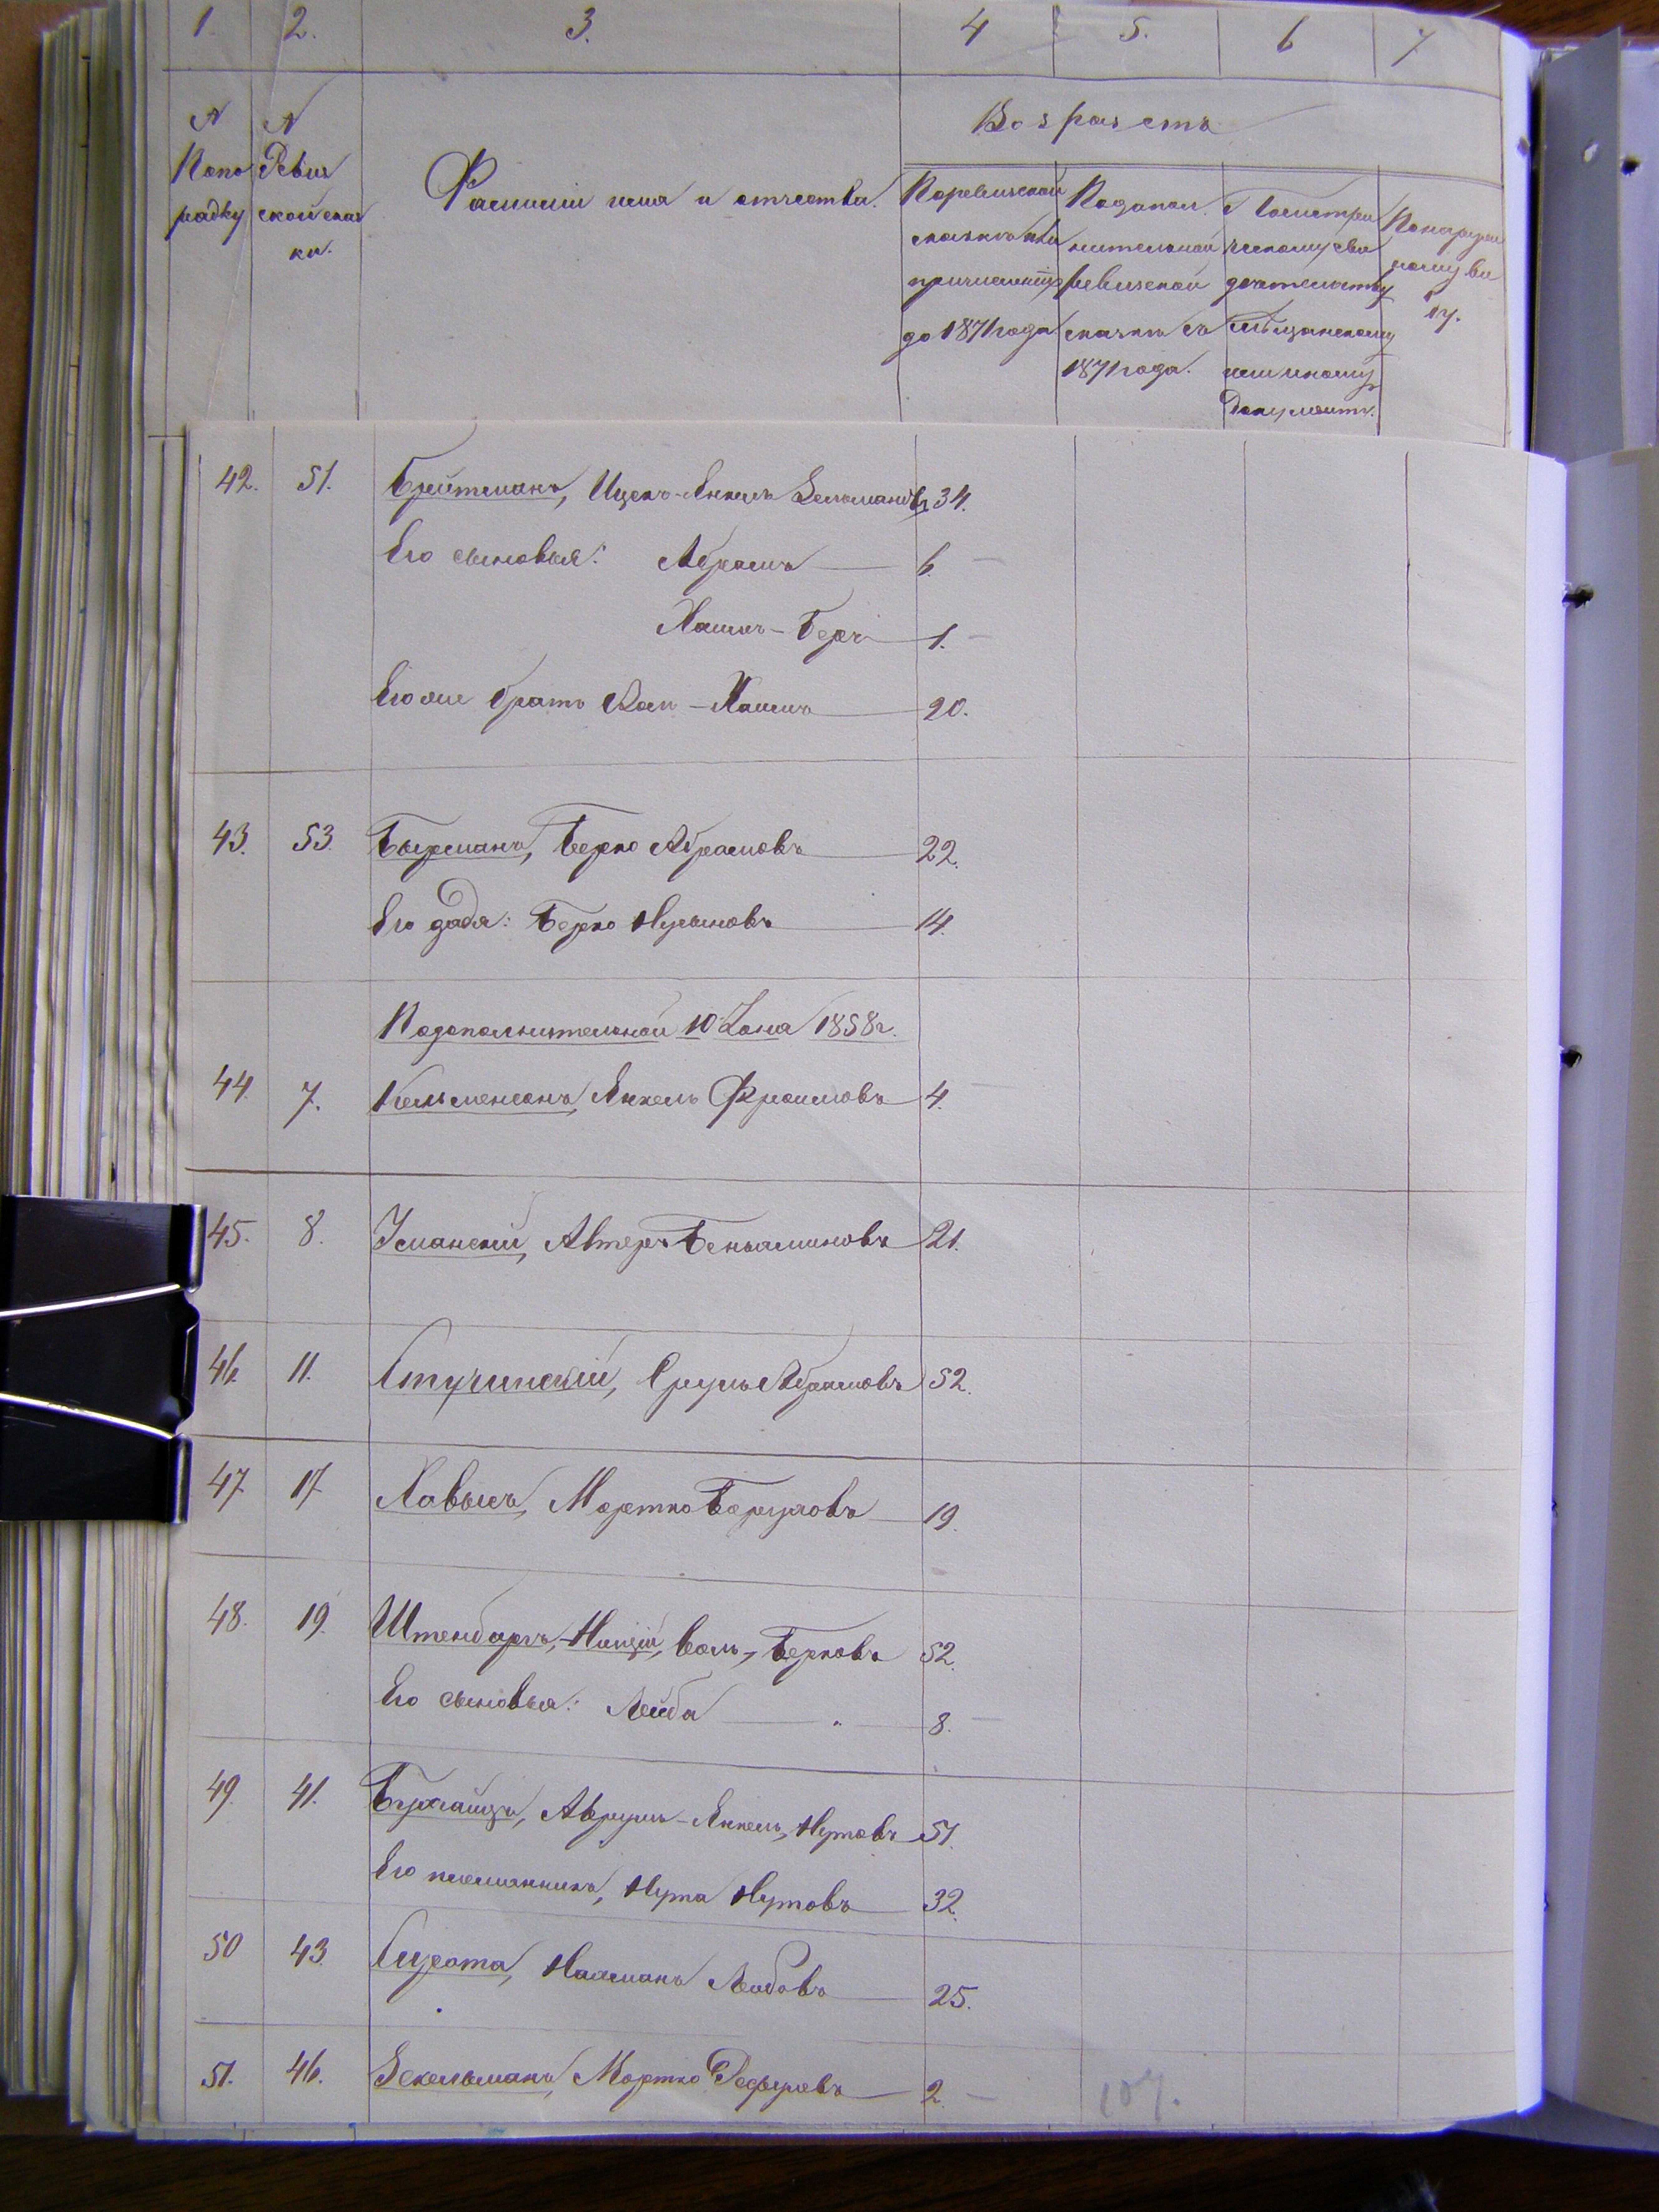 1. 2. 3. 4 5. 6 7
Возрастъ
N Попорядку
N Ревизской сказки.
Фамиліи имя и отчества.
Поревизской сказкѣ или причисленію до 1871 года
Подополнительной ревизской сказкѣ съ 1871 года.
Пометрическому свидѣтельству мѣщанскому или иному документу.
Понаружному виду.
42. 51. Брейтманъ, Ицекъ-Янкель Зельмановъ 34.
Его сыновья: Абрамъ 6. —
Хаимъ-Беръ 1. —
Его же братъ Хаимъ 20.
43. 53. Бырманъ, Берко Абрамовъ 22.
Его дядя: Берко 14.
Подополнительной 10 Іюня 1858 г.
44. 7. Кельменсонъ, Янкель Фроимовъ 4. —
45. 8. Усманскій, Авнеръ Беньяминовъ 21.
46. 11. Стучинскій, Срулъ Абрамовъ 52.
47 17 Хавысъ, Мортко Боруховъ 19.
48. 19. Штенбаргъ, Берковъ 52.
Его сыновья: Лейба " 8. —
49. 41. Аврумъ-Янкель, Нутовъ 51.
Его племянникъ, Нута Нутовъ 32.
50 43. Сирота, Нахманъ Лейбовъ 25.
51. 46. Зекельманъ, Мортко 2 —
107.